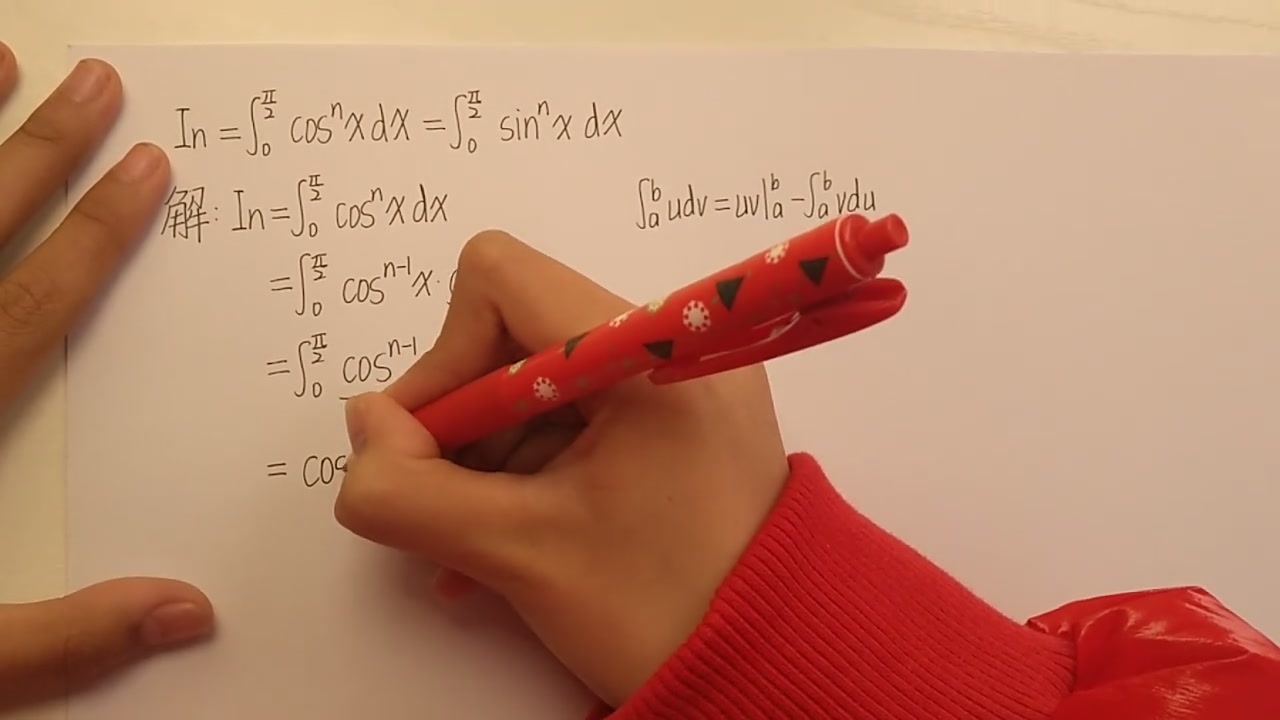 In = ∫₀^(π/2) cosⁿx dx = ∫₀^(π/2) sinⁿx dx
解: In = ∫₀^(π/2) cosⁿx dx
∫ₐᵇ u dv = uv|ₐᵇ - ∫ₐᵇ v du
= ∫₀^(π/2) cosⁿ⁻¹x ·
= ∫₀^(π/2) cosⁿ⁻¹
= cos